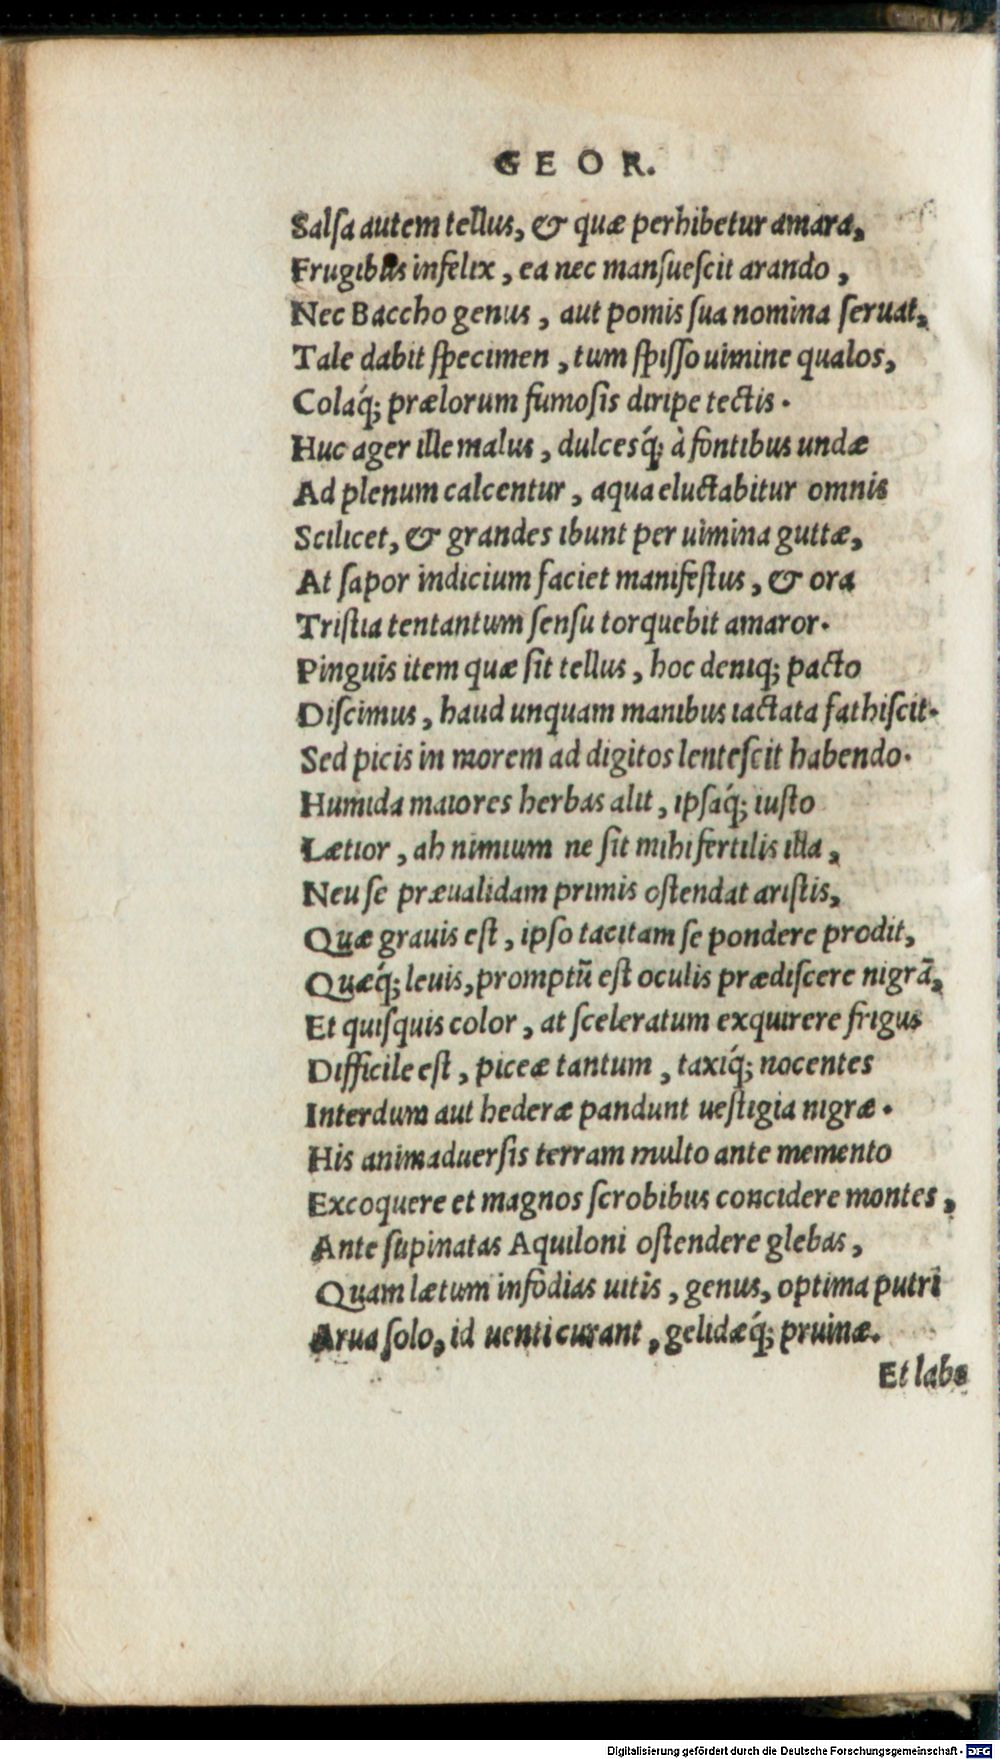 GEOR.
Salſa autem tellus, & quæ perhibetur amara,
Frugibus infelix, ea nec manſueſcit arando,
Nec Baccho genus, aut pomis ſua nomina ſeruat,
Tale dabit ſpecimen, tum ſpiſſo uimine qualos,
Colaq́; prælorum fumoſis diripe tectis.
Huc ager ille malus, dulcesq́; à fontibus undæ
Ad plenum calcentur, aqua eluctabitur omnis
Scilicet, & grandes ibunt per uimina guttæ,
At ſapor indicium faciet manifeſtus, & ora
Triſtia tentantum ſenſu torquebit amaror.
Pinguis item quæ ſit tellus, hoc deniq; pacto
Diſcimus, haud unquam manibus iactata fathiſcit.
Sed picis in morem ad digitos lenteſcit habendo.
Humida maiores herbas alit, ipſaq́; iuſto
Lætior, ah nimium ne ſit mihi fertilis illa,
Neu ſe præualidam primis oſtendat ariſtis,
Quæ grauis eſt, ipſo tacitam ſe pondere prodit,
Quæq́; leuis, promptū eſt oculis prædiſcere nigrā,
Et quiſquis color, at ſceleratum exquirere frigus
Difficile eſt, piceæ tantum, taxiq́; nocentes
Interdum aut hederæ pandunt ueſtigia nigræ.
His animaduerſis terram multo ante memento
Excoquere et magnos ſcrobibus concidere montes,
Ante ſupinatas Aquiloni oſtendere glebas,
Quam lætum infodias uitis, genus, optima putri
Arua ſolo, id uenti curant, gelidæq́; pruinæ.
Et labe
Digitalisierung gefördert durch die Deutsche Forschungsgemeinschaft - DFG